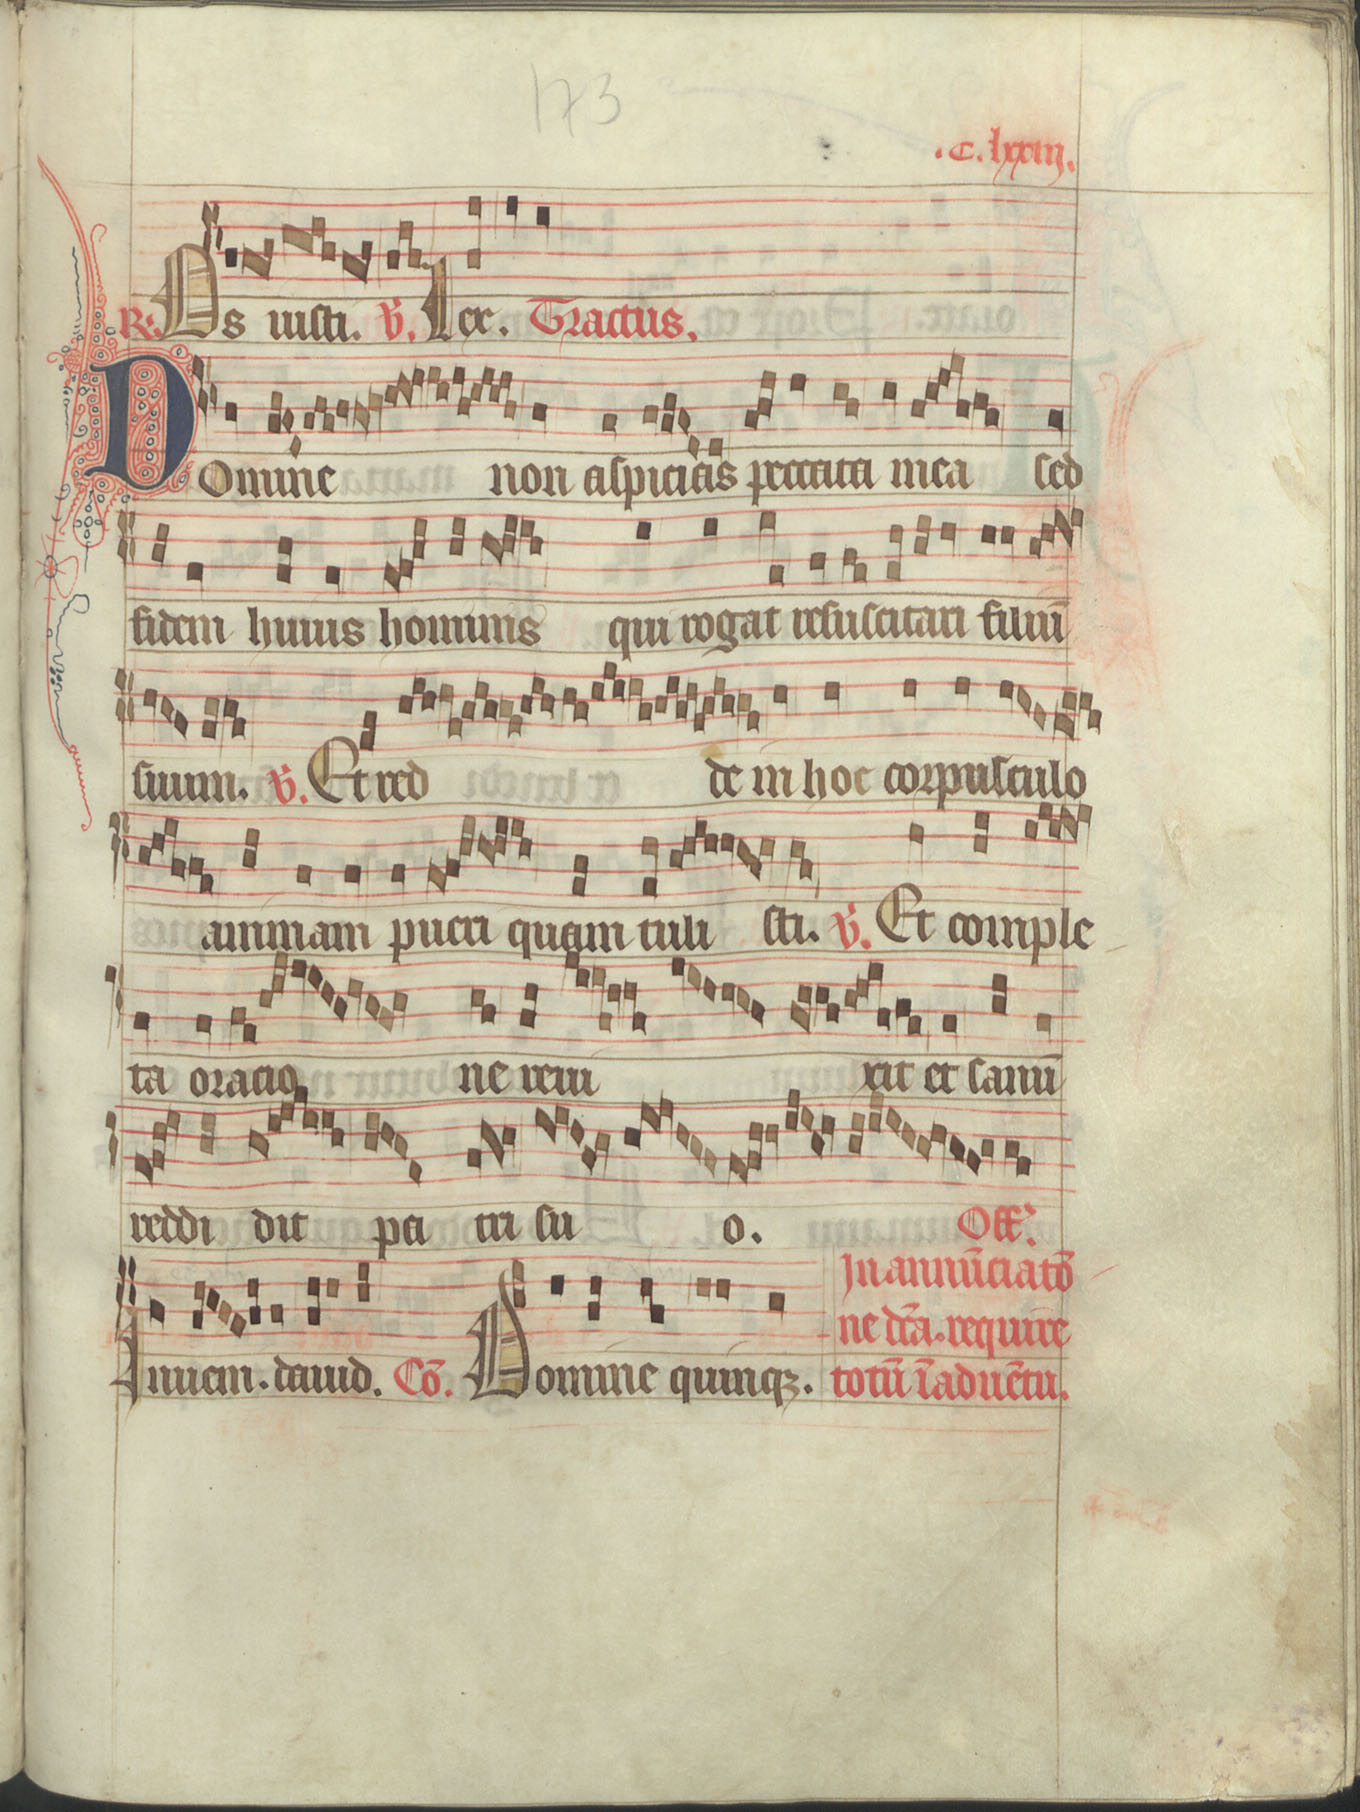 173
.C.lxxiij.
R. Os iusti. V. Lex. Tractus.
Domine non aspicias peccata mea sed
fidem huius hominis qui rogat resuscitari filiū
suum. V. Et red de in hoc corpusculo
animam pueri quam tuli sti. V. Et comple
ta oracio ne reui xit et sanū
reddi dit pa tri su o. Off.
In annūciatō
ne dn̄a. require
Inueni. dauid. Cō. Domine quinqꝫ. totū ī aduētu.